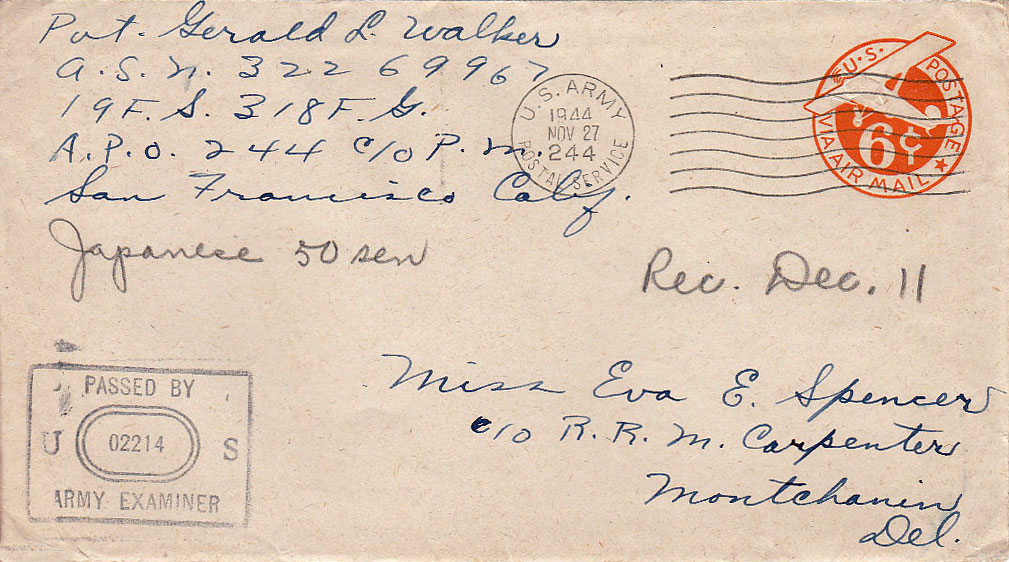 Pvt. Gerald L. Walker
A.S.N. 32269967
19 F.S. 318 F.G.
A.P.O. 244 c/o P.M.
San Francisco Calif.
U.S. ARMY
1944
NOV 27
244
POSTAL SERVICE
U.S. POSTAGE
6¢
VIA AIR MAIL
Japanese 50 sen
Rec. Dec. 11
PASSED BY
U 02214 S
ARMY EXAMINER
Miss Eva E. Spencer
c/o R. R. M. Carpenter
Montchanin
Del.